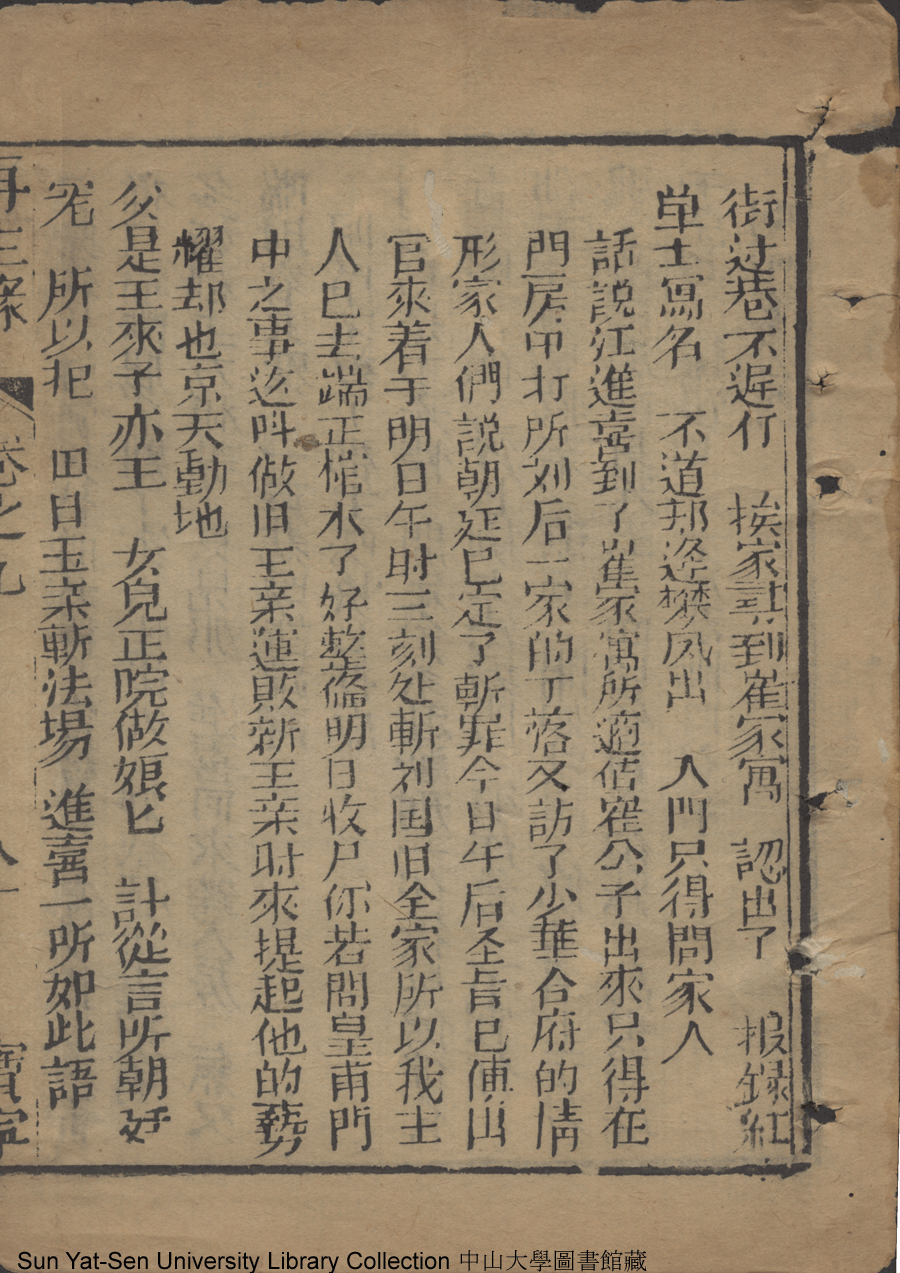 街过巷不遲行　挨家尋到崔家寓　認出了　报録紅
単士寫名　不道邦逄樊凤出　入門只得問家人
話説江進喜到了崔家寓所適值崔公子出來只得在
門房中打听刘后一家的下落又訪了少華合府的情
形家人們説朝廷已定了斬罪今日午后圣旨已傳出
官來着于明日午时三刻处斬刘国旧全家所以我主
人已去端正棺木了好整俻明日收尸你若問皇甫門
中之事迄呌做旧王亲運敗新王亲时來提起他的勢
耀却也京天動地
父是王來子亦王　女兒正院做娘匕　計從言听朝好
　所以把　田日玉亲斬法場　進喜一听如此語
再生緣　卷之九　寳寧
Sun Yat-Sen University Library Collection 中山大學圖書館藏